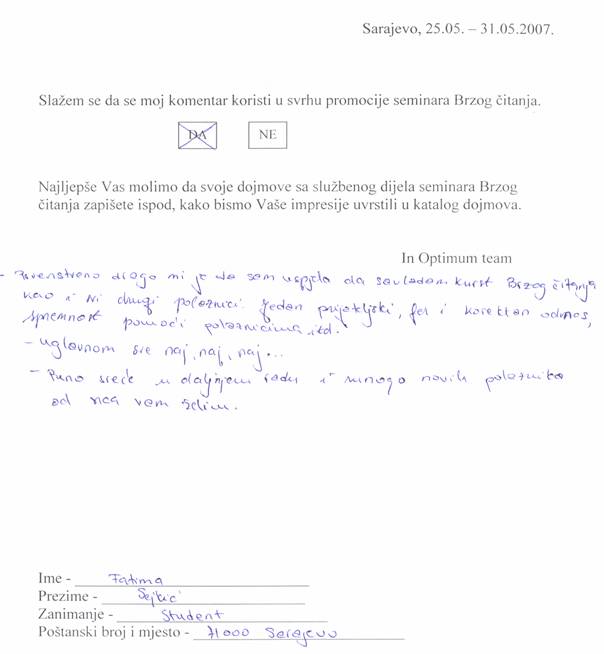 Sarajevo, 25.05. – 31.05.2007.
Slažem se da se moj komentar koristi u svrhu promocije seminara Brzog čitanja.
DA NE
Najljepše Vas molimo da svoje dojmove sa službenog dijela seminara Brzog
čitanja zapišete ispod, kako bismo Vaše impresije uvrstili u katalog dojmova.
In Optimum team
- Prvenstveno drago mi je da sam uspjela da savladam kurst Brzog čitanja
kao i svi drugi polaznici. Jedan prijateljski, fer i korektan odnos,
spremnost pomoći polaznicima, itd.
- Uglavnom sve naj, naj, naj...
- Puno sreće u daljnjem radu i mnogo novih polaznika
od vam želim.
Ime - Fatima
Prezime -
Zanimanje - Student
Poštanski broj i mjesto - 71000 Sarajevo